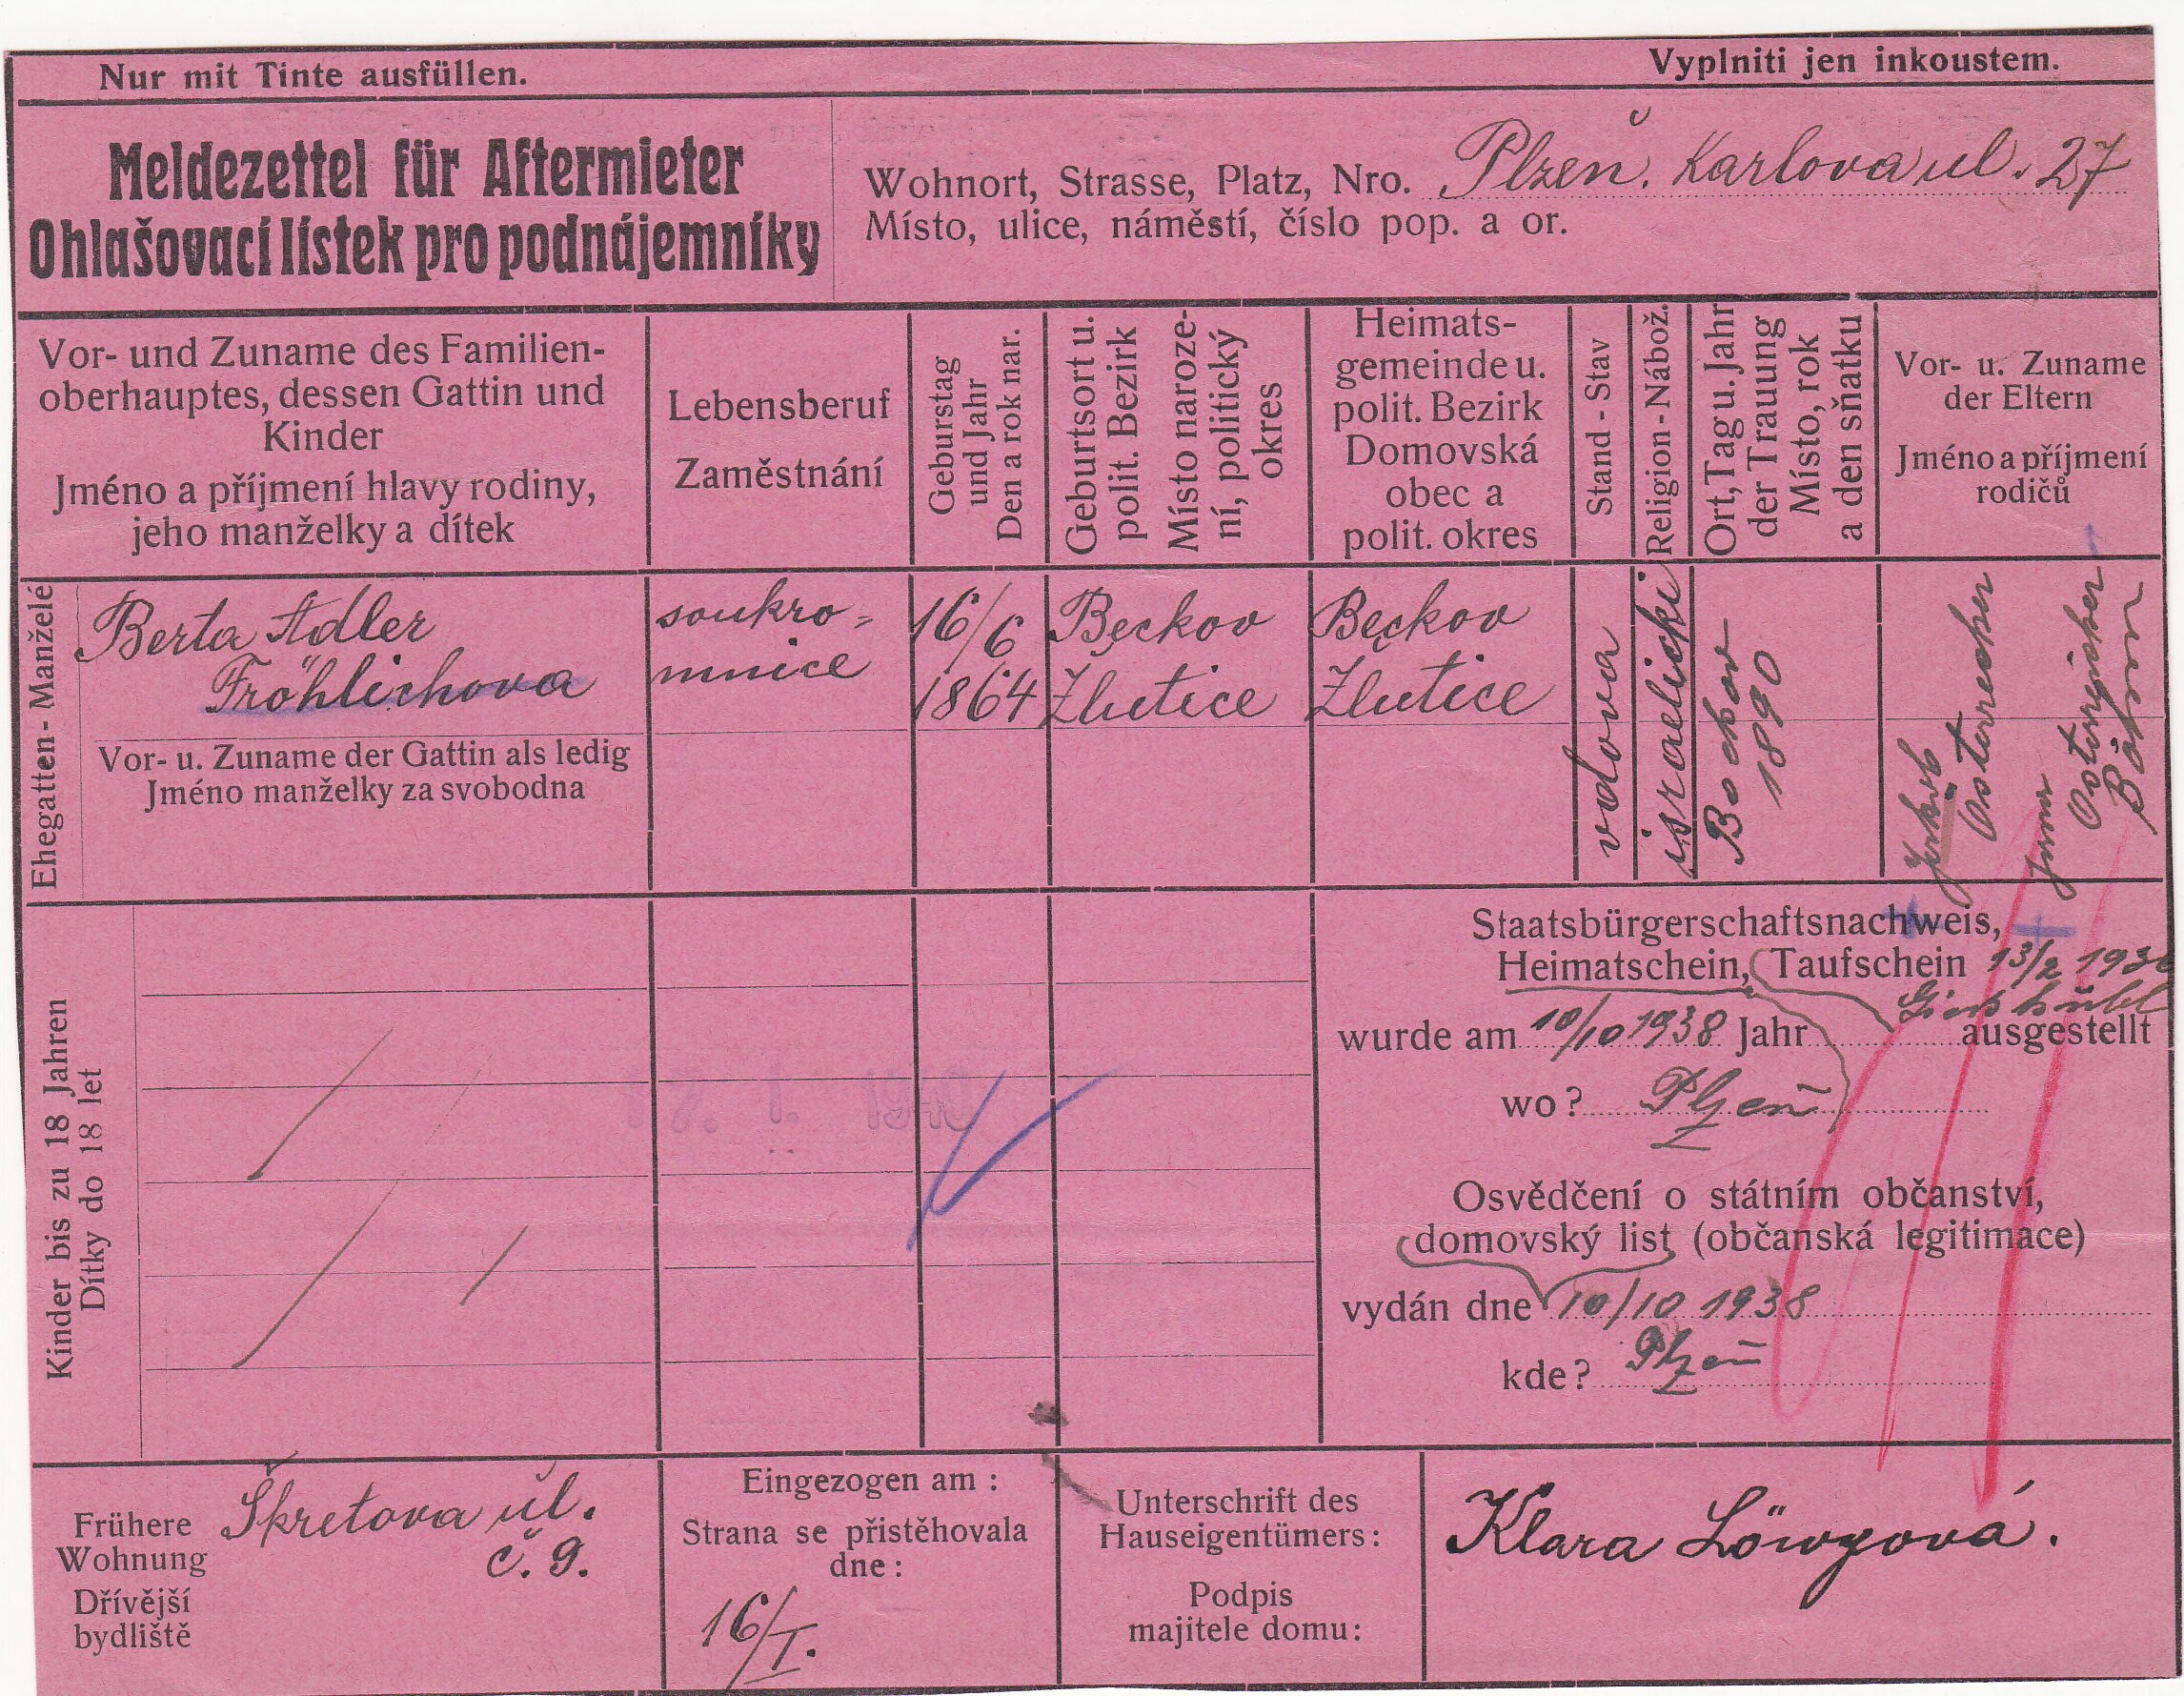 Nur mit Tinte ausfüllen.
Vyplniti jen inkoustem.
Meldezettel für Aftermieter
Ohlašovací lístek pro podnájemníky
Wohnort, Strasse, Platz, Nro. Plzeň. Karlova ul. 27
Místo, ulice, náměstí, číslo pop. a or.
Vor- und Zuname des Familien-
oberhauptes, dessen Gattin und
Kinder
Jméno a příjmení hlavy rodiny,
jeho manželky a dítek
Lebensberuf
Zaměstnání
Geburstag
und Jahr
Den a rok nar.
Geburtsort u.
polit. Bezirk
Místo naroze-
ní, politický
okres
Heimats-
gemeinde u.
polit. Bezirk
Domovská
obec a
polit. okres
Stand - Stav
Religion - Nábož.
Ort, Tag u. Jahr
der Trauung
Místo, rok
a den sňatku
Vor- u. Zuname
der Eltern
Jméno a příjmení
rodičů
Ehegatten - Manželé
Berta Adler
Fröhlichova
soukro=
mnice
16/6
1864
Bečkov
Žlutice
Bečkov
Žlutice
vdova
israelický
Bočkov
1890
Jakob
Österreicher
Anna
Österreicher
Böhm
Vor- u. Zuname der Gattin als ledig
Jméno manželky za svobodna
Kinder bis zu 18 Jahren
Dítky do 18 let
1940
Staatsbürgerschaftsnachweis,
Heimatschein, Taufschein 13/2
Giesshübl
wurde am 10/10 1938 Jahr ausgestellt
wo? Plzeň
Osvědčení o státním občanství,
domovský list (občanská legitimace)
vydán dne 10/10 1938
kde? Plzeň
Frühere
Wohnung
Dřívější
bydliště
Škretova ul.
č. 9.
Eingezogen am :
Strana se přistěhovala
dne :
16/I.
Unterschrift des
Hauseigentümers :
Podpis
majitele domu :
Klara Löwyová.